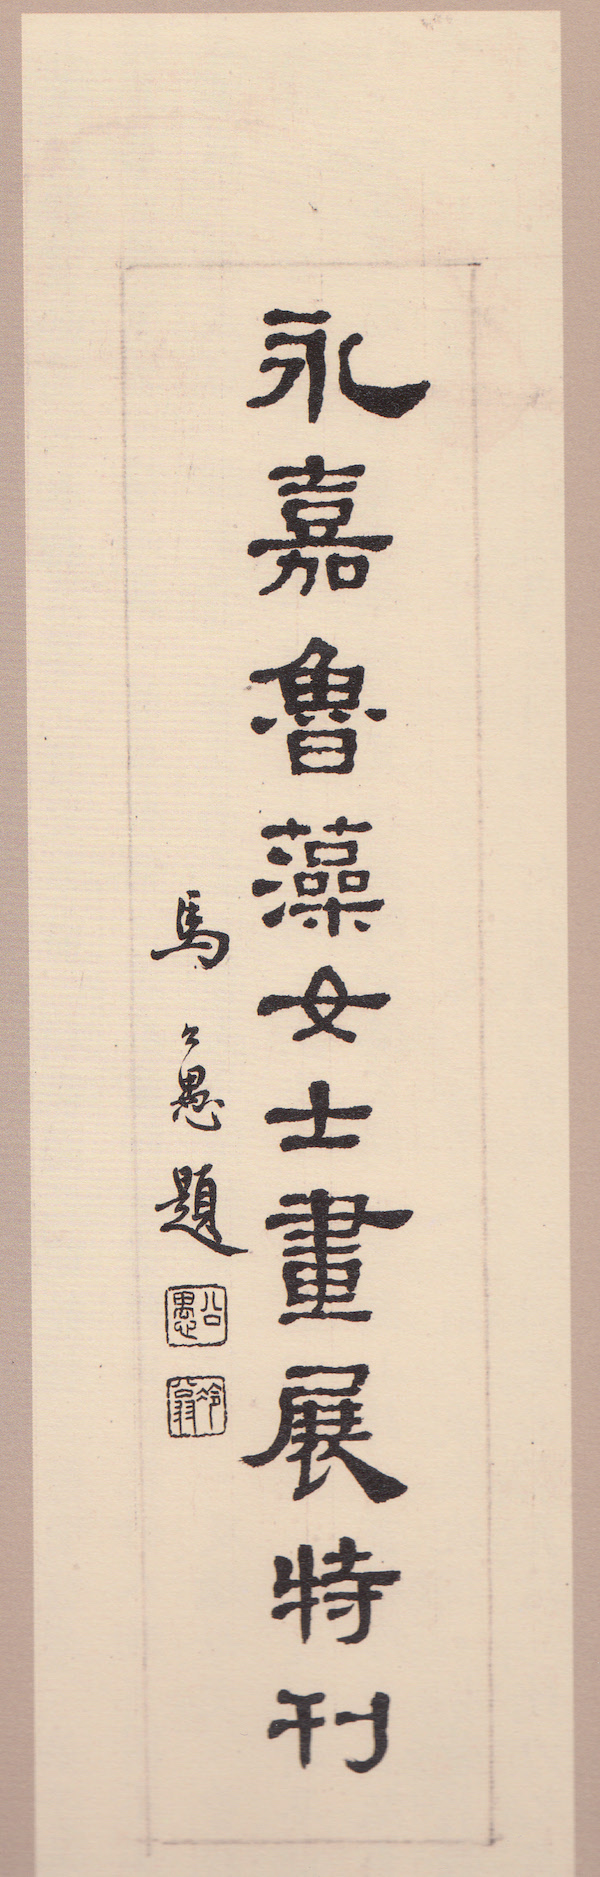 永嘉魯藻女士畫展特刊
馬公愚題
公愚
冷翁